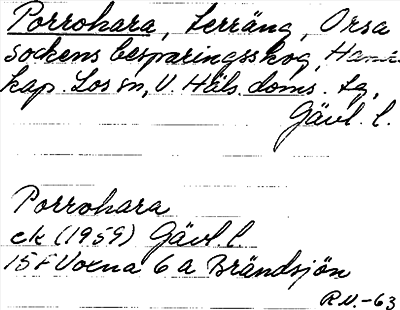 Porrohara, terräng, Orsa
sockens besparingsskog, Hamra
kap. Los sn, V. Häls. doms. tg,
Gävl. l.
Porrohara
ek (1959) Gävl. l.
15F Voxna 6 a Brändsjön
R.N.-63